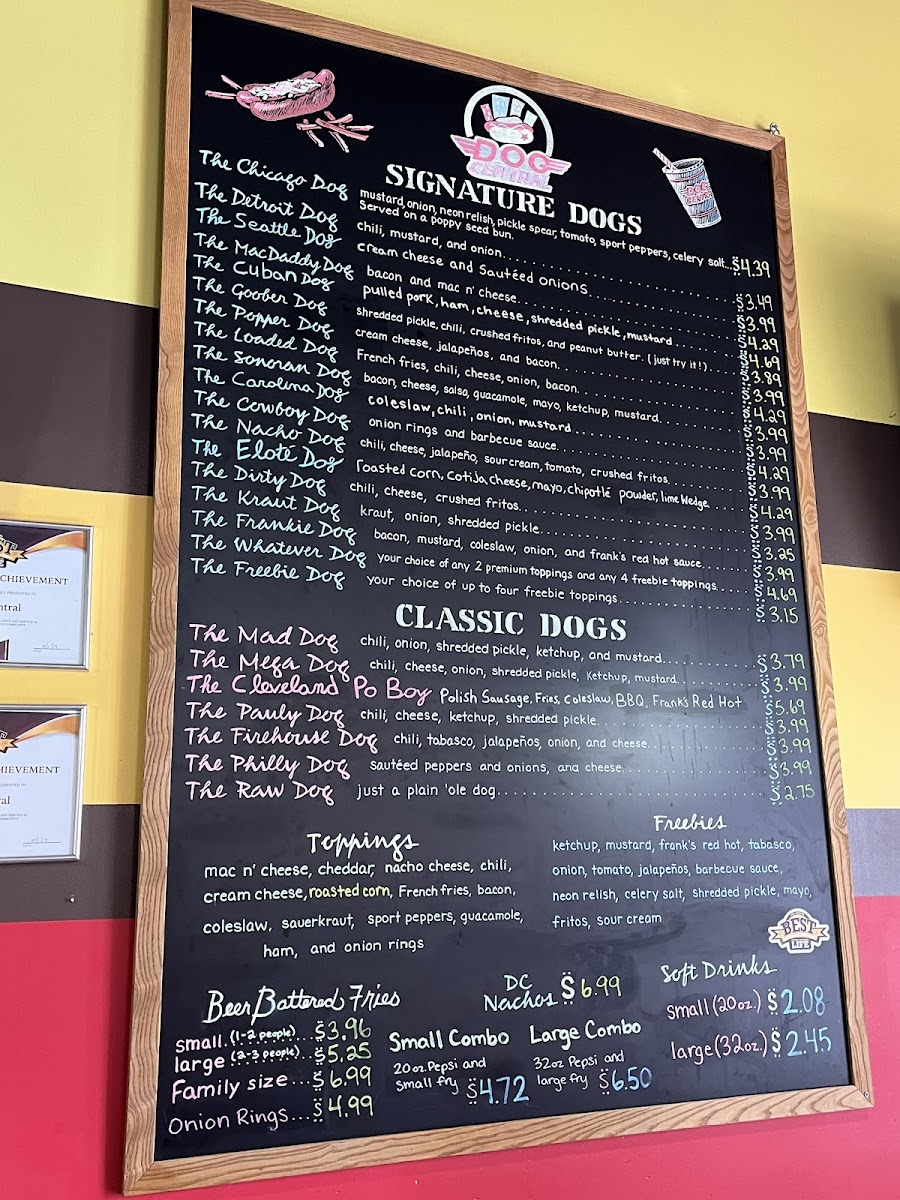 DOG
CENTRAL
DOG
CENTRAL
SIGNATURE DOGS
The Chicago Dog mustard, onion, neon relish, pickle spear, tomato, sport peppers, celery salt...$4.39
Served on a poppy seed bun.
The Detroit Dog chili, mustard, and onion...$3.49
The Seattle Dog cream cheese and Sautéed onions...$3.99
The MacDaddy Dog bacon and mac n' cheese...$4.29
The Cuban Dog pulled pork, ham, cheese, shredded pickle, mustard...$4.69
The Goober Dog shredded pickle, chili, crushed fritos, and peanut butter. (just try it!)...$3.89
The Popper Dog cream cheese, jalapeños, and bacon...$3.99
The Loaded Dog French fries, chili, cheese, onion, bacon...$4.29
The Sonoran Dog bacon, cheese, salsa, guacamole, mayo, ketchup, mustard...$3.99
The Carolina Dog coleslaw, chili, onion, mustard...$3.99
The Cowboy Dog onion rings and barbecue sauce...$4.29
The Nacho Dog chili, cheese, jalapeño, sour cream, tomato, crushed fritos...$3.99
The Elote Dog roasted corn, Cotija, cheese, mayo, chipotlé powder, lime wedge...$4.29
The Dirty Dog chili, cheese, crushed fritos...$3.99
The Kraut Dog kraut, onion, shredded pickle...$3.25
The Frankie Dog bacon, mustard, coleslaw, onion, and frank's red hot sauce...$3.99
The Whatever Dog your choice of any 2 premium toppings and any 4 freebie toppings...$4.69
The Freebie Dog your choice of up to four freebie toppings...$3.15
CLASSIC DOGS
The Mad Dog chili, onion, shredded pickle, ketchup, and mustard...$3.79
The Mega Dog chili, cheese, onion, shredded pickle, Ketchup, mustard...$3.99
The Cleveland Po Boy Polish Sausage, Fries, Coleslaw, BBQ, Frank's Red Hot $5.69
The Pauly Dog chili, cheese, ketchup, shredded pickle...$3.99
The Firehouse Dog chili, tabasco, jalapeños, onion, and cheese...$3.99
The Philly Dog sautéed peppers and onions, and cheese...$3.99
The Raw Dog just a plain 'ole dog...$2.75
Toppings
mac n' cheese, cheddar, nacho cheese, chili,
cream cheese, roasted corn, French fries, bacon,
coleslaw, sauerkraut, sport peppers, guacamole,
ham, and onion rings
Freebies
ketchup, mustard, frank's red hot, tabasco,
onion, tomato, jalapeños, barbecue sauce,
neon relish, celery salt, shredded pickle, mayo,
fritos, sour cream
BEST
LIFE
Beer Battered Fries
small (1-2 people)...$3.96
large (2-3 people)...$5.25
Family size...$6.99
Onion Rings...$4.99
DC
Nachos $6.99
Small Combo
20oz Pepsi and
small fry $4.72
Large Combo
32oz Pepsi and
large fry $6.50
Soft Drinks
small (20oz.) $2.08
large (32oz.) $2.45
CHIEVEMENT
ntral
HIEVEMENT
ral